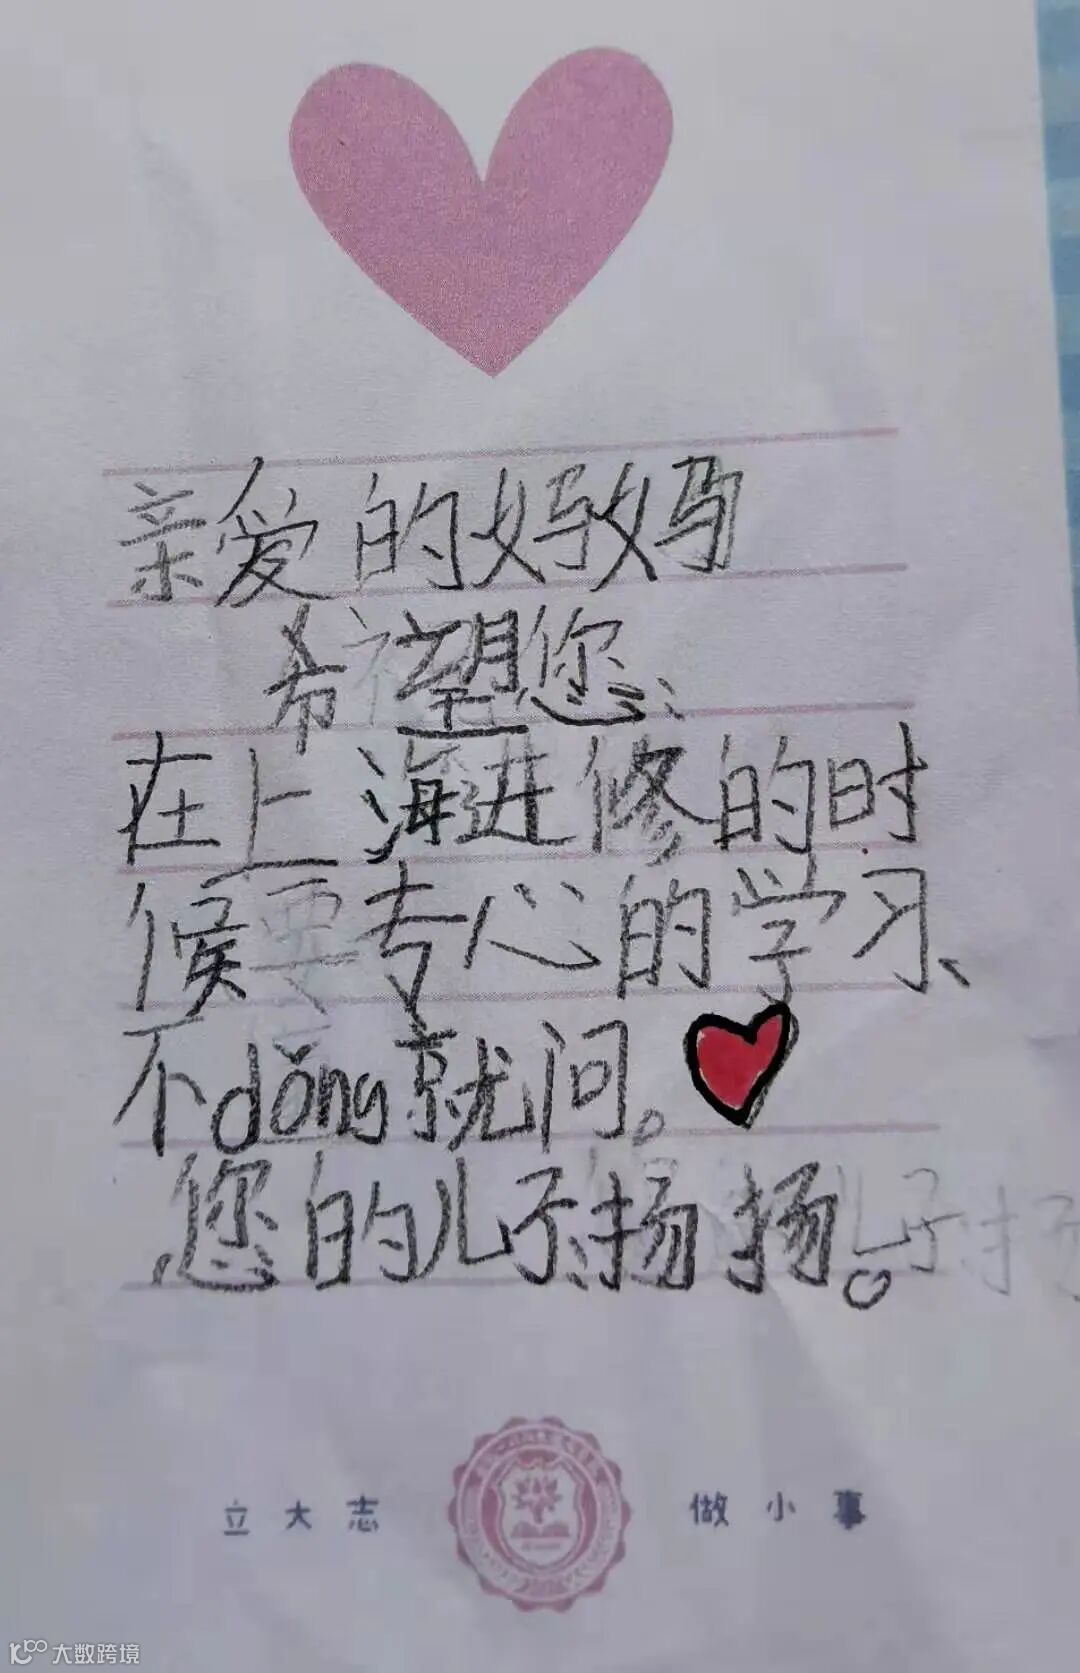 亲爱的妈妈
希望您:
在上海进修的时
候要专心的学习、
不dǒng就问。
您的儿子:扬扬。
立大志 做小事
大数跨境